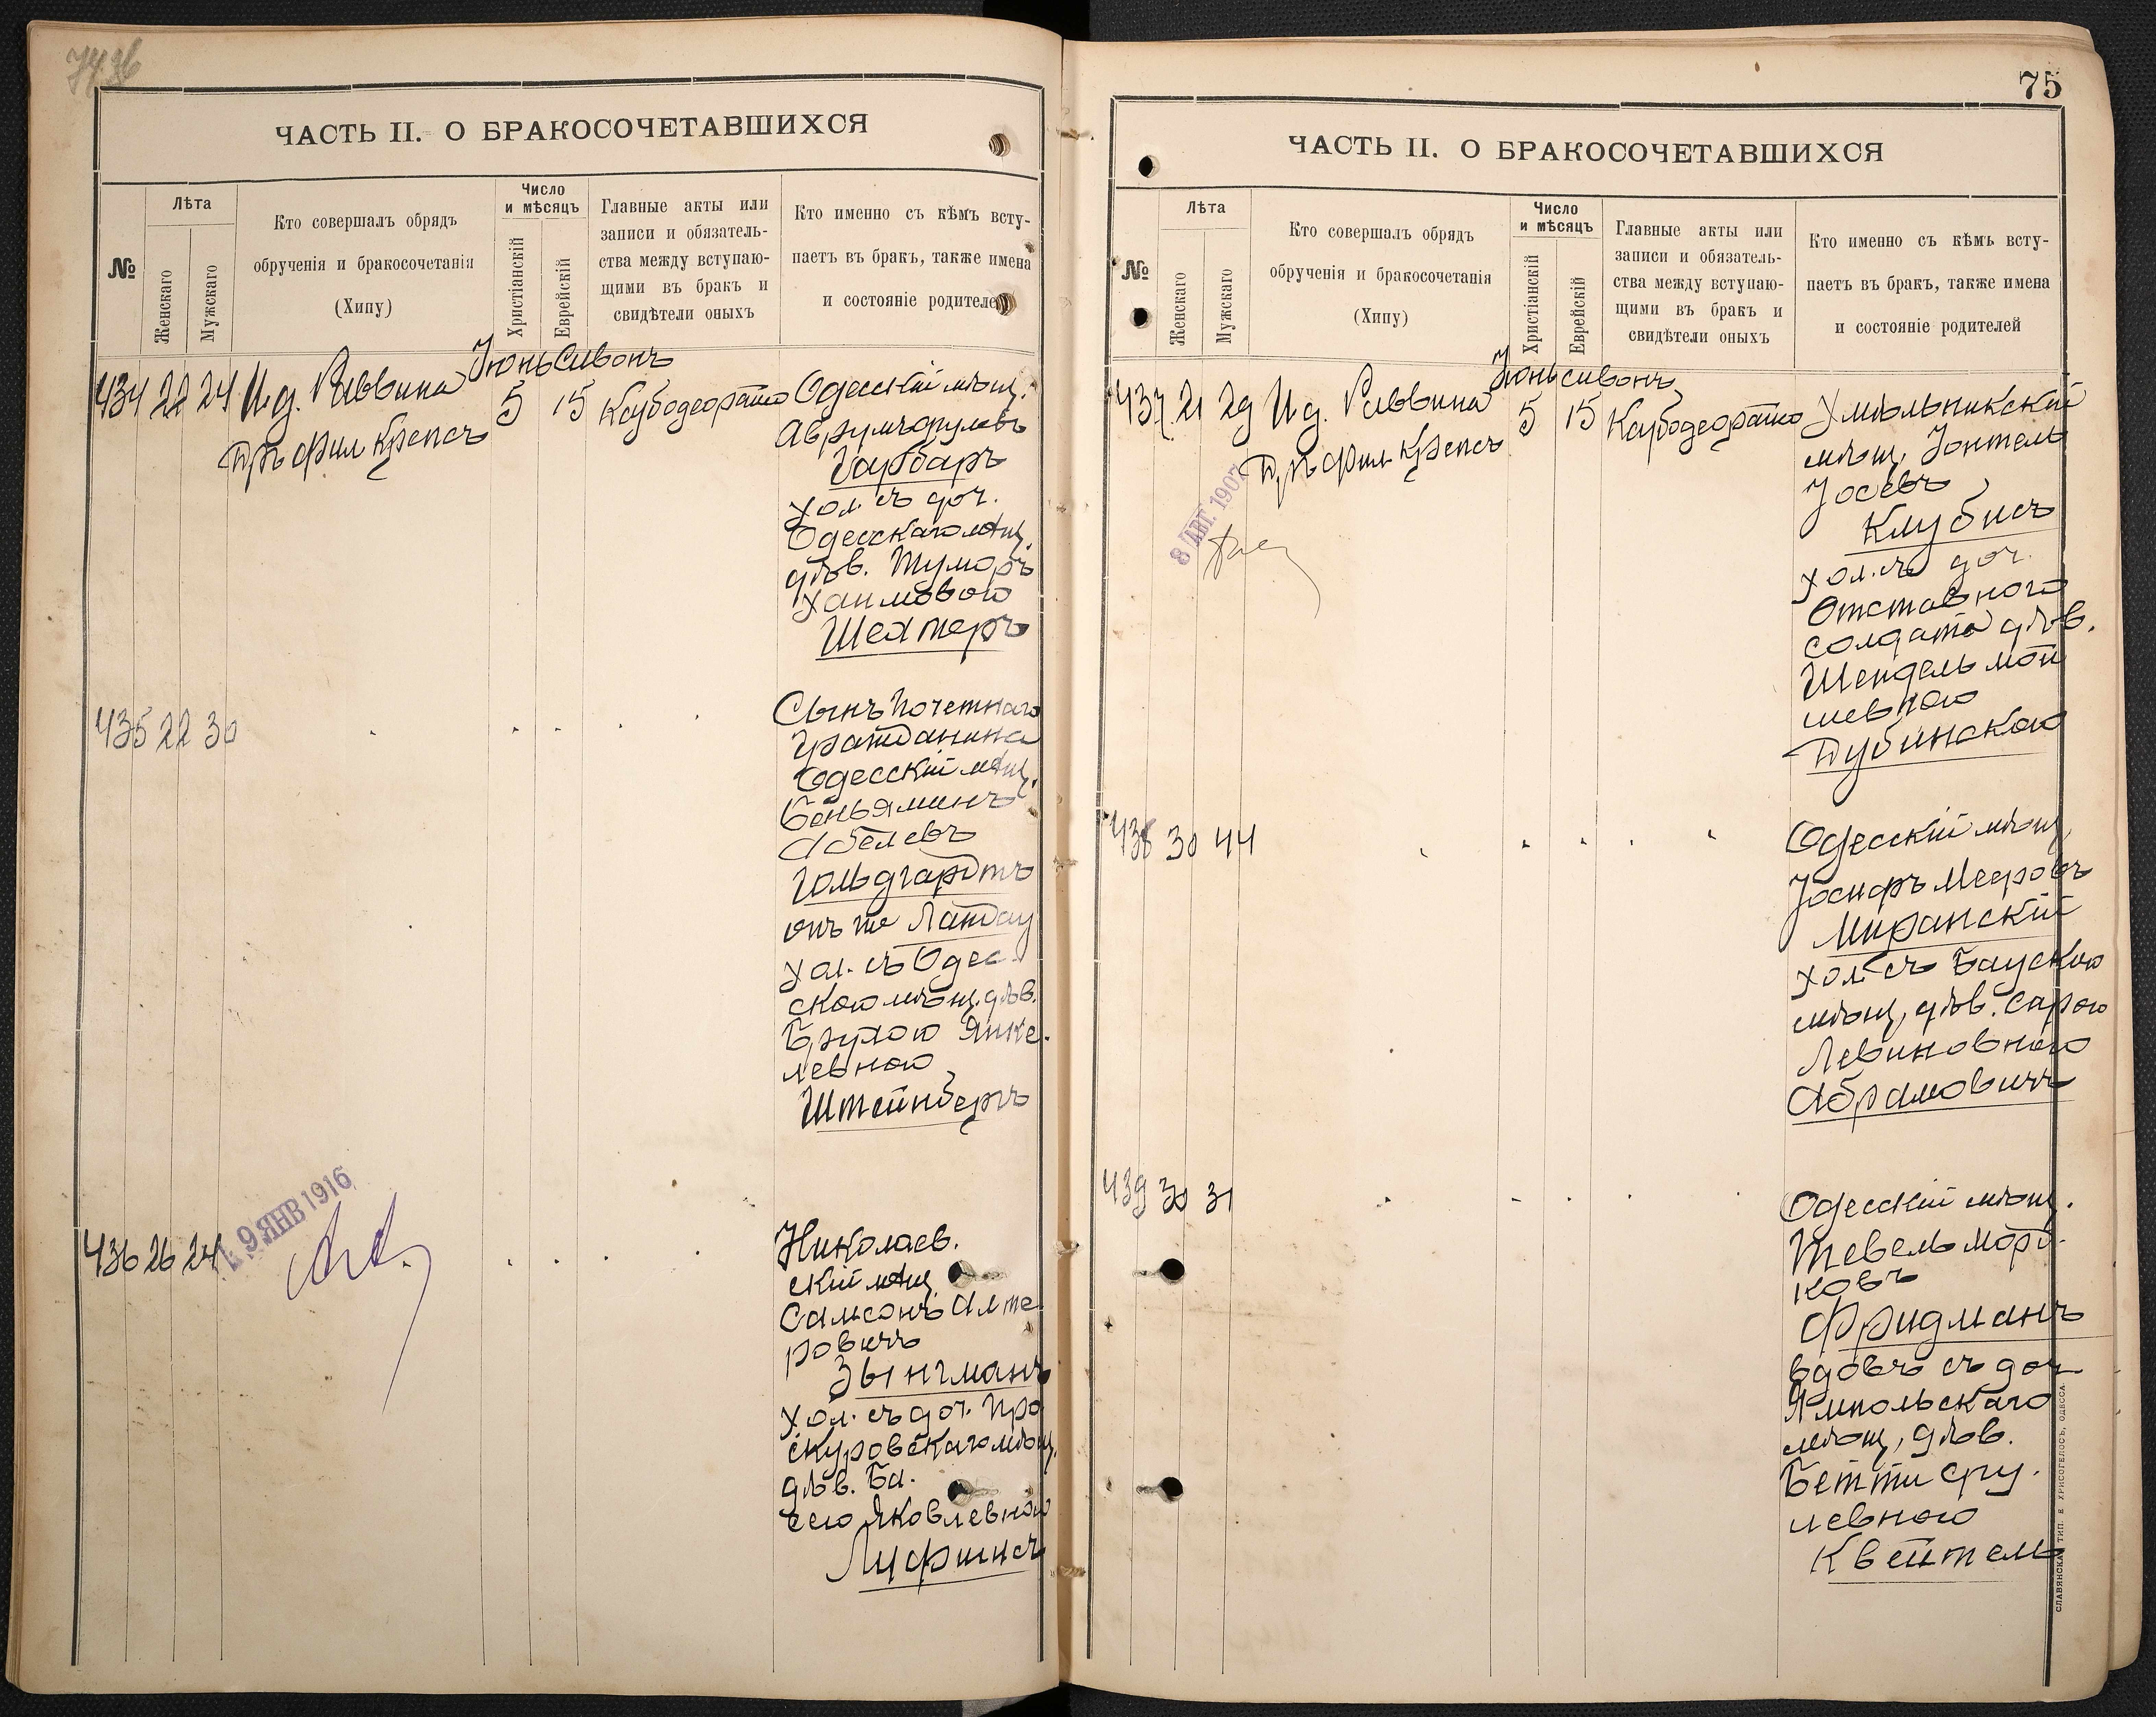 ЧАСТЬ II. О БРАКОСОЧЕТАВШИХСЯ
№
Лѣта
Женскаго
Мужскаго
Кто совершалъ обрядъ
обрученія и бракосочетанія
(Хипу)
Число
и мѣсяцъ
Христіанскій
Еврейскій
Главные акты или
записи и обязатель-
ства между вступаю-
щими въ бракъ и
свидѣтели оныхъ
Кто именно съ кѣмъ всту-
паетъ въ бракъ, также имена
и состояніе родителей
Іюнь Сивонъ
434 22 24 И. д. Раввина 5 15
Д-ръ фил Крепсъ
Одесскій мѣщ.
Аврумъ
Гарбаръ
хол. съ доч.
Одесскаго мѣщ.
дѣв.
Хаимовою
Шехтеръ
435 22 30
Сынъ почетнаго
гражданина
Одесскій мѣщ.
Беньяминъ
Абелевъ
Гольдгардтъ
онъ же Ландау
хол. съ Одес-
скою мѣщ. дѣв.
Брухою Янке-
левною
Штейнбергъ
9 ЯНВ 1916
436 26 24
Николаев.
скій мѣщ.
Самсонъ Алте
ровичъ
Зынгманъ
хол. съ доч. Про
скуровскаго мѣщ.
дѣв. Ба.
сею Яковлевною
Луфшицъ
75
ЧАСТЬ II. О БРАКОСОЧЕТАВШИХСЯ
№
Лѣта
Женскаго
Мужскаго
Кто совершалъ обрядъ
обрученія и бракосочетанія
(Хипу)
Число
и мѣсяцъ
Христіанскій
Еврейскій
Главные акты или
записи и обязатель-
ства между вступаю-
щими въ бракъ и
свидѣтели оныхъ
Кто именно съ кѣмъ всту-
паетъ въ бракъ, также имена
и состояніе родителей
Іюнь Сивонъ
437 21 29 И. д. Раввина 5 15
Д-ръ фил Крепсъ
8 АВГ. 1907
Хмѣльникскій
мѣщ. Іонтель
Іосевъ
Клубисъ
хол. съ доч.
Отставного
солдата дѣв.
Шендель Мой
шевною
Дубинскою
438 30 44
Одесскій мѣщ.
Іосифъ Мееровъ
Миранскій
хол. съ Баускою
мѣщ. дѣв. Сарою
Левиновною
Абрамовичъ
439 30 31
Одесскій мѣщ.
Тевель Морд-
ковъ
Фридманъ
вдовъ съ доч
Ямпольскаго
мѣщ, дѣв.
Бетти Сру-
левною
Квейтель
СЛАВЯНСКАЯ ТИП. Е ХРИСОГЕЛОСЪ, ОДЕССА